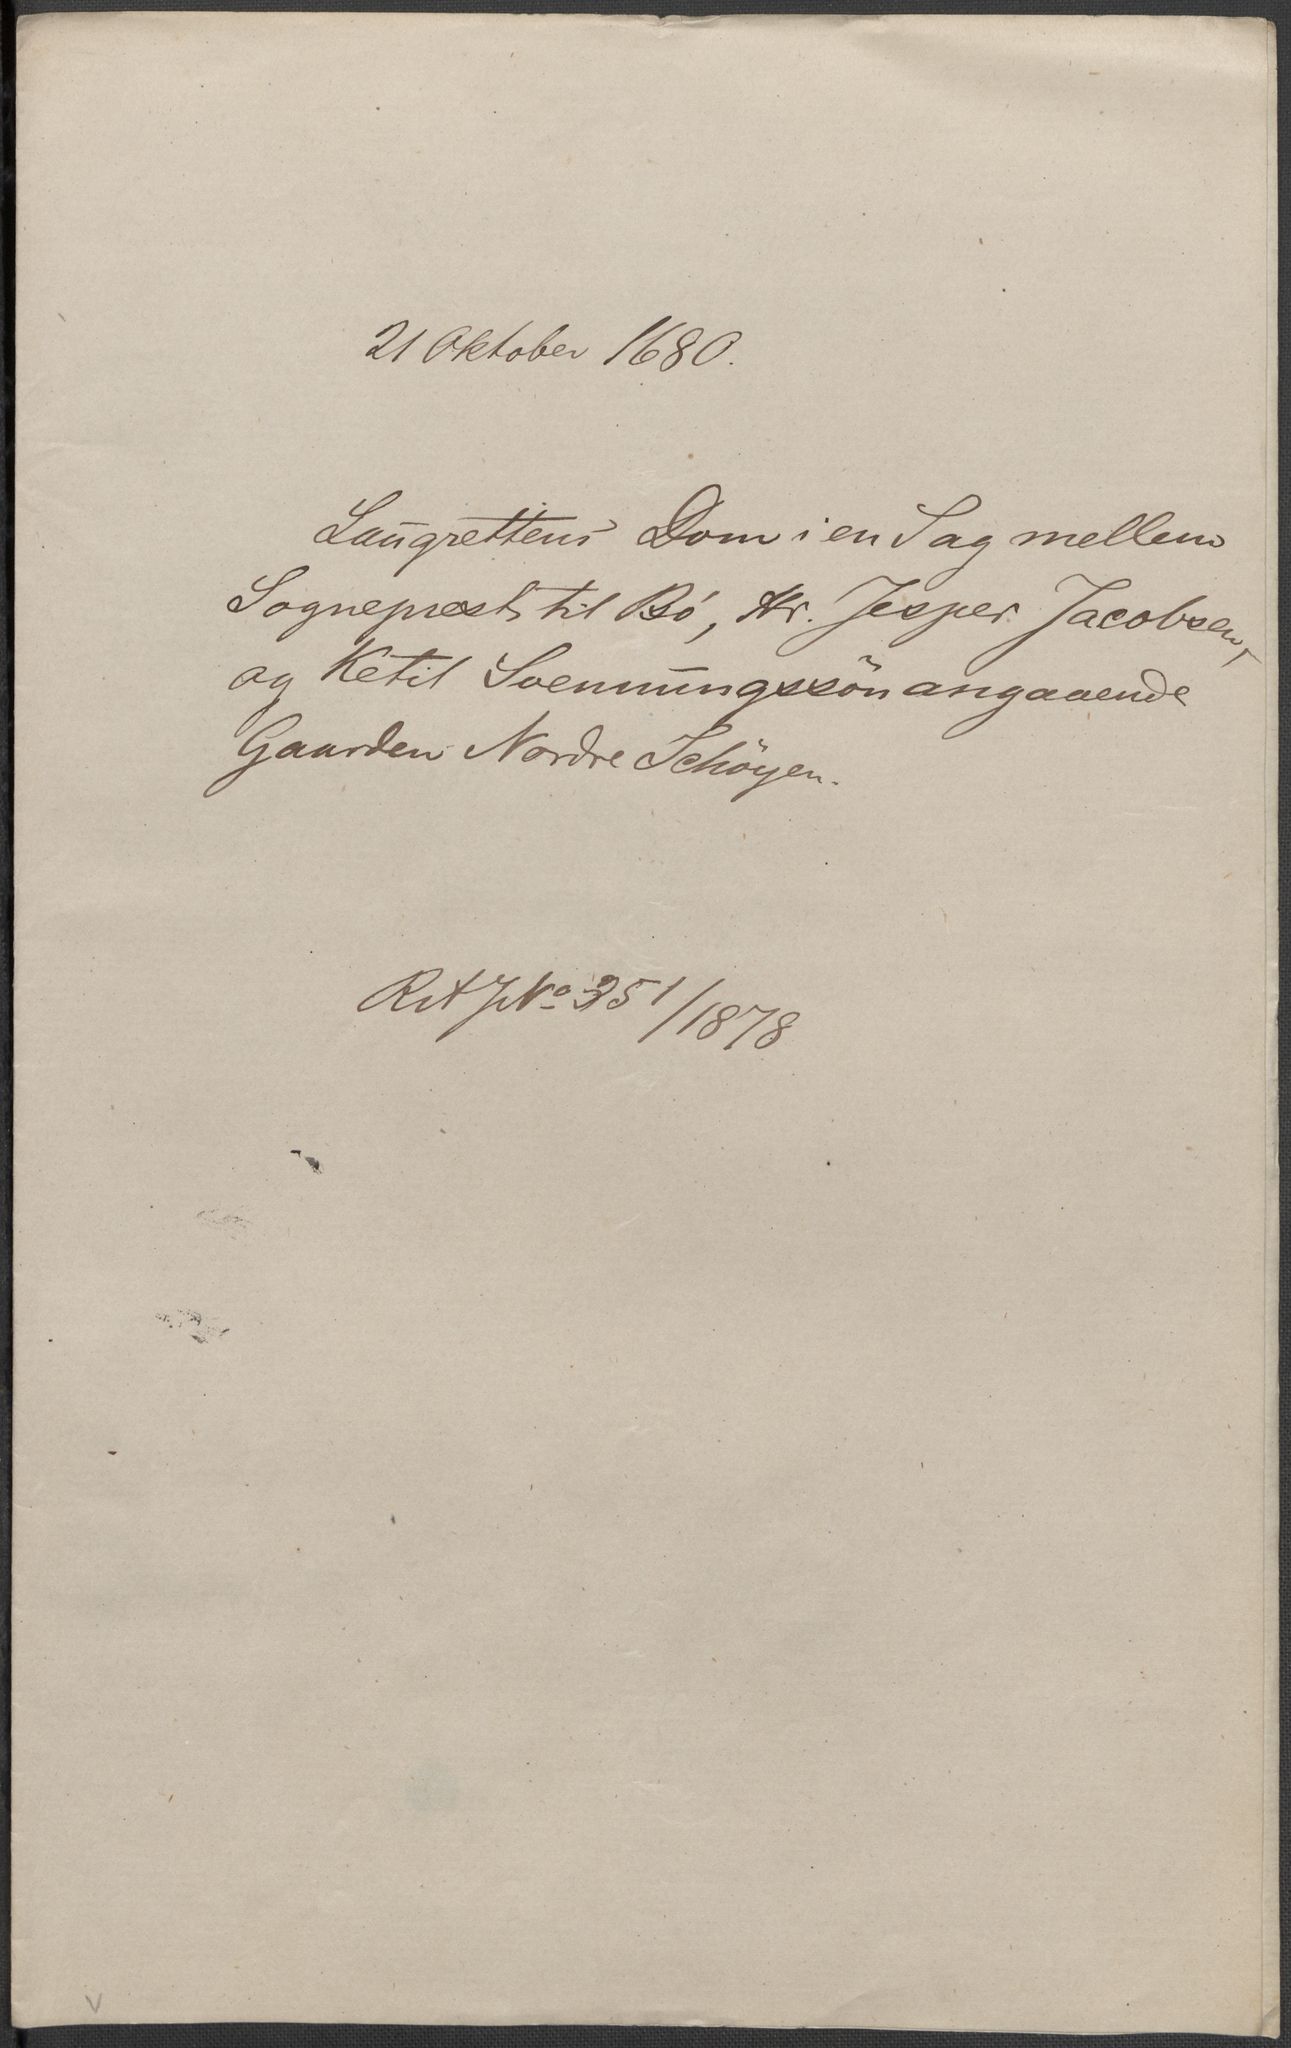 21 Oktober 1680.
Laugrettens Dom i en Sag mellem
Sogneprest til Bö, Hr. Jesper Jacobsen,
og Ketil Svennungssön angaaende
Gaarden Nordre Schöyen.
RA JNo 351/1878